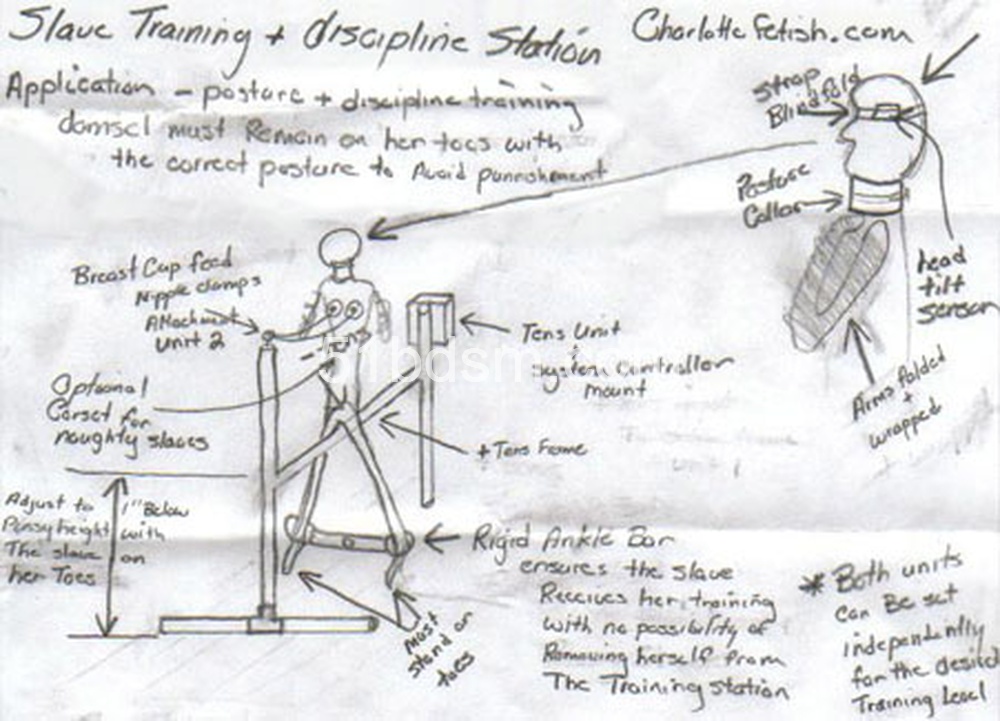 Slave Training + discipline Station
CharlotteFetish.com
Application - posture + discipline training
damsel must Remain on her toes with
the correct posture to Avoid punnishment
Strap
Blindfold
Posture
Collar
head
tilt
sensor
Arms folded
+
wrapped
Breast Cup feed
Nipple clamps
Attachment
unit 2
Tens Unit
system controller
mount
51bdsm.com
Optional
Corset for
naughty slaves
+ Tens Frame
Adjust to
Pussy height
The slave
her Toes
1" Below
with
on
Rigid Ankle Bar
ensures the slave
Receives her training
with no possibility of
Removing herself from
The Training station
must
stand on
toes
* Both units
can Be set
independently
for the desired
Training Level